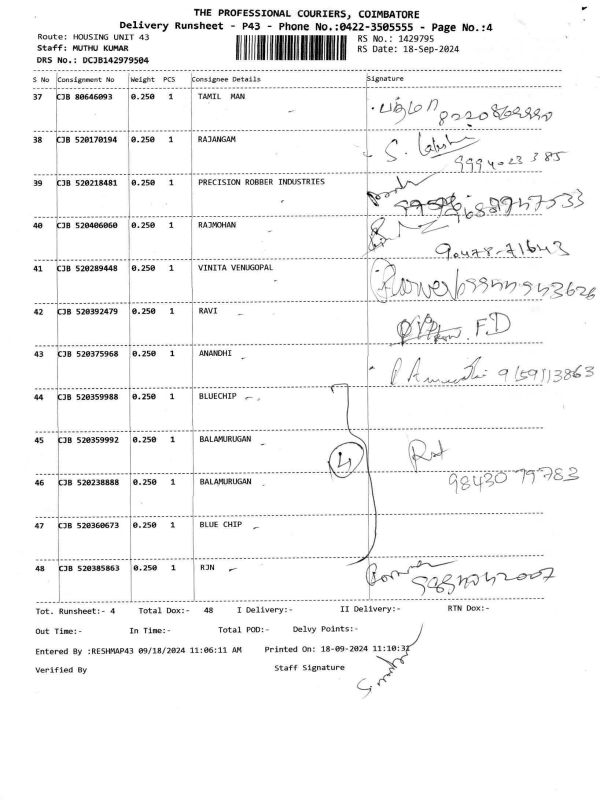 THE PROFESSIONAL COURIERS, COIMBATORE
Delivery Runsheet - P43 - Phone No.:0422-3505555 - Page No.:4
Route: HOUSING UNIT 43
RS No.: 1429795
Staff: MUTHU KUMAR
RS Date: 18-Sep-2024
DRS No.: DCJB142979504
S No Consignment No Weight PCS Consignee Details Signature
37 CJB 80646093 0.250 1 TAMIL MAN
38 CJB 520170194 0.250 1 RAJANGAM S.
9994023385
39 CJB 520218481 0.250 1 PRECISION ROBBER INDUSTRIES
40 CJB 520406060 0.250 1 RAJMOHAN
90478-71643
41 CJB 520289448 0.250 1 VINITA VENUGOPAL
42 CJB 520392479 0.250 1 RAVI
F.D
43 CJB 520375968 0.250 1 ANANDHI
9159113863
44 CJB 520359988 0.250 1 BLUECHIP
45 CJB 520359992 0.250 1 BALAMURUGAN
4
46 CJB 520238888 0.250 1 BALAMURUGAN 9843079783
47 CJB 520360673 0.250 1 BLUE CHIP
48 CJB 520385863 0.250 1 RJN
Tot. Runsheet:- 4 Total Dox:- 48 I Delivery:- II Delivery:- RTN Dox:-
Out Time:- In Time:- Total POD:- Delvy Points:-
Entered By :RESHMAP43 09/18/2024 11:06:11 AM Printed On: 18-09-2024 11:10:31
Verified By Staff Signature